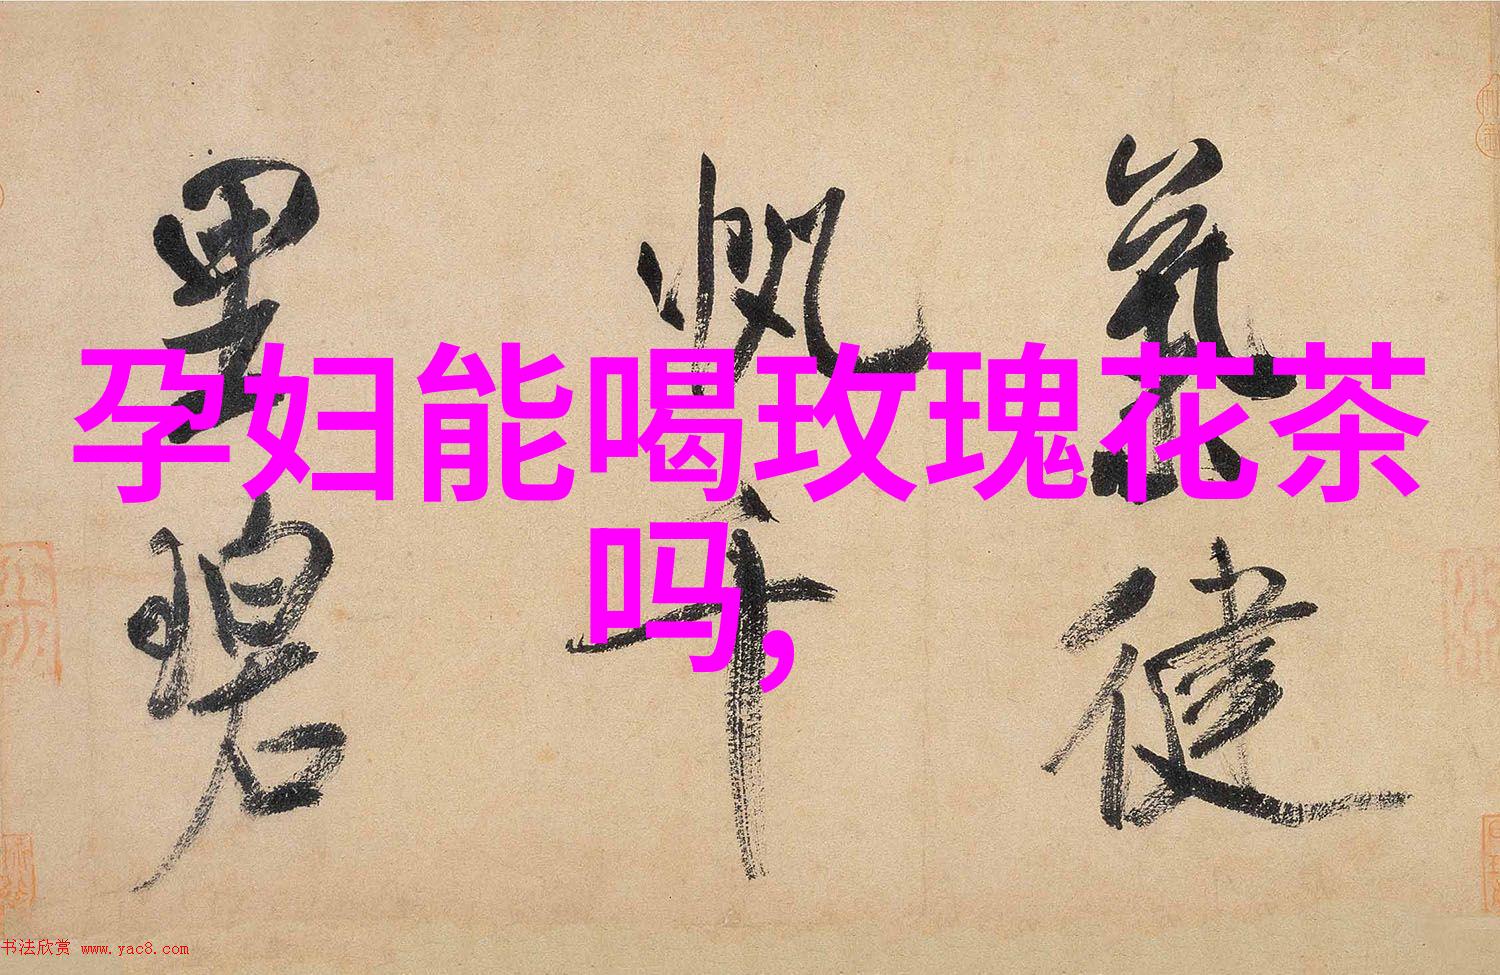 孕妇能喝玫瑰花茶
吗,
健
帆
千
里
碧
书法欣赏 www.yac8.com